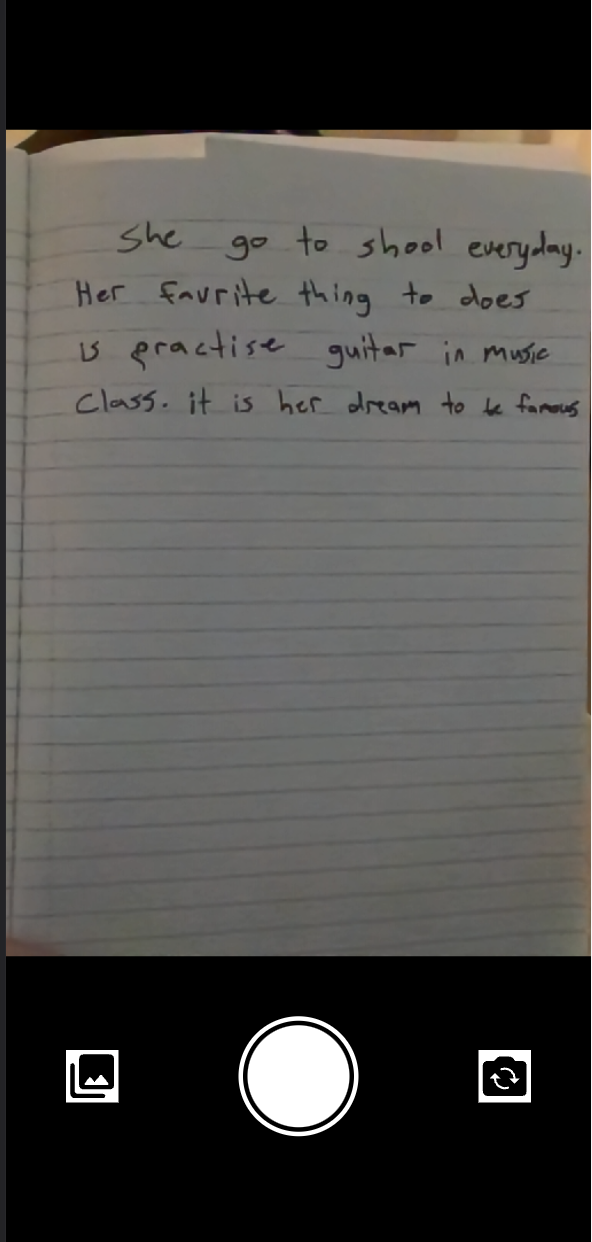 She go to shool everyday.
Her favrite thing to does
is practise guitar in music
Class. it is her dream to be famous